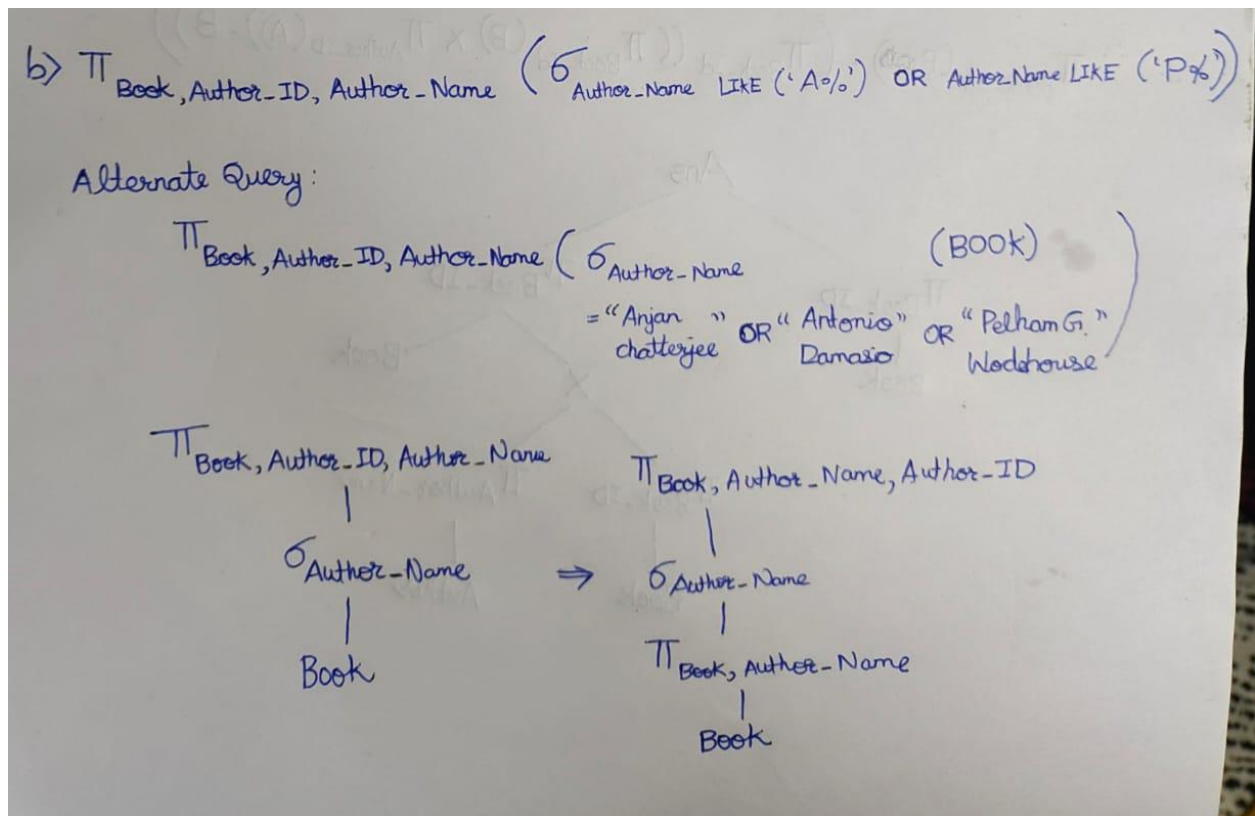 b) π Book, Author_ID, Author_Name (σ Author_Name LIKE ('A%') OR Author_Name LIKE ('P%'))
Alternate Query:
π Book, Author_ID, Author_Name (σ Author_Name (BOOK))
= "Anjan chatterjee" OR "Antonio Damasio" OR "Pelham G. Wodehouse"
π Book, Author_ID, Author_Name
σ Author_Name
Book
⇒
π Book, Author_Name, Author_ID
σ Author_Name
π Book, Author_Name
Book